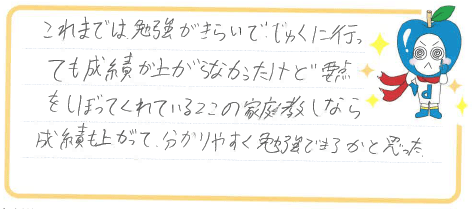 これまでは勉強がきらいで、じゅくに行っ
ても成績が上がらなかったけど要点
をしぼってくれているここの家庭教しなら
成績も上がって、分かりやすく勉強できるかと思った。